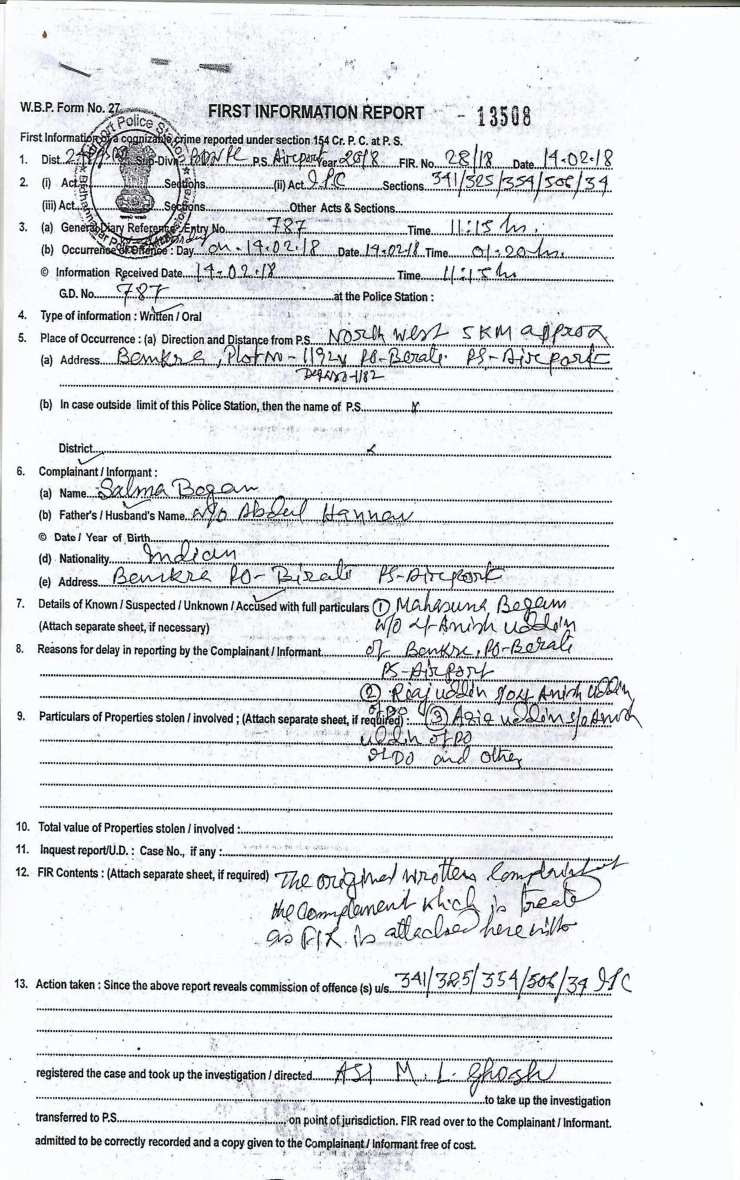 W.B.P. Form No. 27 FIRST INFORMATION REPORT - 13508
First Information of a cognizable crime reported under section 154 Cr. P. C. at P. S.
1. Dist. Sub-Divn. P.S. Airport Year 2018 FIR. No. 28/18 Date 14.02.18
2. (i) Act Sections (ii) Act. IPC Sections 341/325/354/506/34
(iii) Act Sections Other Acts & Sections
3. (a) General Diary Reference : Entry No. 787 Time 11:15 hr.
(b) Occurrence of Offence : Day on - 14.02.18 Date 14.02.18 Time 01-20 hr.
© Information Received Date 14.02.18 Time 11:15 hr
G.D. No. 787 at the Police Station :
4. Type of information : Written / Oral
5. Place of Occurrence : (a) Direction and Distance from P.S. North West 5 KM approx
(a) Address Bankra, Plot no - 1192 PO-Berati PS-Airport
(b) In case outside limit of this Police Station, then the name of P.S. x
District x
6. Complainant / Informant :
(a) Name Salma Begam
(b) Father's / Husband's Name w/o Abdul Hannan
© Date / Year of Birth
(d) Nationality Indian
(e) Address Bankra PO- Birati PS-Airport
7. Details of Known / Suspected / Unknown / Accused with full particulars ① Mahasuna Begam
(Attach separate sheet, if necessary) W/O Lt Anish Uddin
8. Reasons for delay in reporting by the Complainant / Informant of Bankra, PO-Berati
PS-Airport
② Riaj uddin S/O Lt Anish Uddin
of DO
9. Particulars of Properties stolen / involved ; (Attach separate sheet, if required) : ③ Aziz uddin S/o Anish
uddin of DO
of DO and other
10. Total value of Properties stolen / involved :
11. Inquest report/U.D. : Case No., if any :
12. FIR Contents : (Attach separate sheet, if required) The original written Complaint of
the Complainent which is treate
as FIR is attached here with
13. Action taken : Since the above report reveals commission of offence (s) u/s. 341/325/354/506/34 IPC
registered the case and took up the investigation / directed ASI M. L. Ghosh
to take up the investigation
transferred to P.S. on point of jurisdiction. FIR read over to the Complainant / Informant.
admitted to be correctly recorded and a copy given to the Complainant / Informant free of cost.